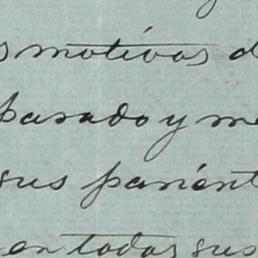 s motivos d
pasado y me
sus parient
en todas sus